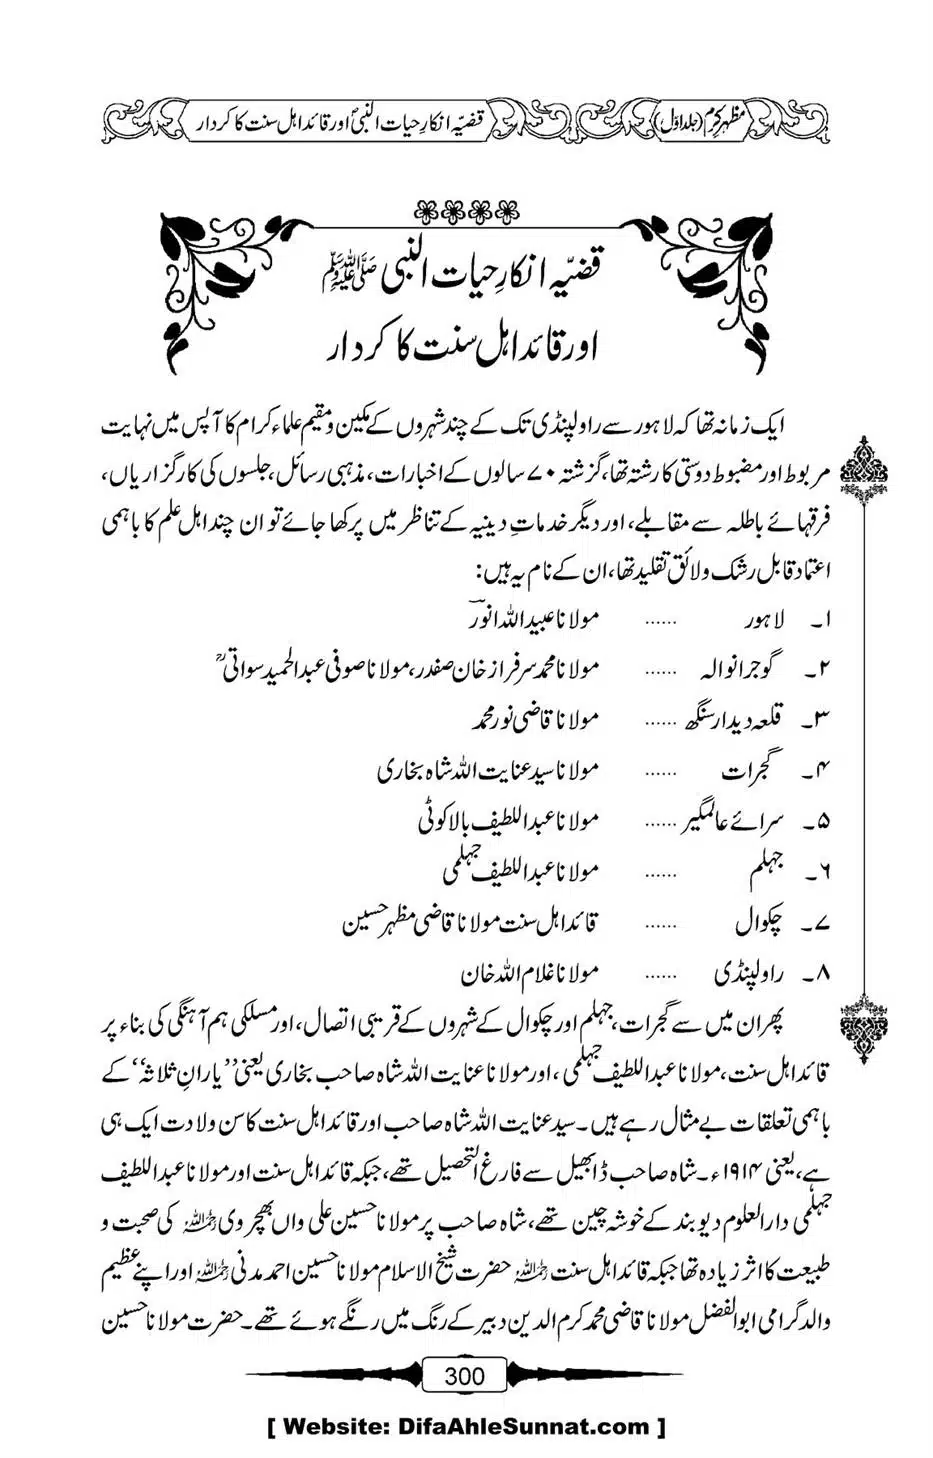 مظہرِ کرم (جلد اوّل)
قضیّہ انکارِ حیات النبیؐ اور قائد اہل سنت کا کردار
قضیّہ انکارِ حیات النبی ﷺ
اور قائد اہل سنت کا کردار
ایک زمانہ تھا کہ لاہور سے راولپنڈی تک کے چند شہروں کے مکین و مقیم علماء کرام کا آپس میں نہایت
مربوط اور مضبوط دوستی کا رشتہ تھا، گزشتہ ۷۰ سالوں کے اخبارات، مذہبی رسائل، جلسوں کی کارگزاریاں،
فرقہائے باطلہ سے مقابلے، اور دیگر خدماتِ دینیہ کے تناظر میں پرکھا جائے تو ان چند اہل علم کا باہمی
اعتماد قابل رشک و لائق تقلید تھا، ان کے نام یہ ہیں:
۱۔ لاہور ...... مولانا عبیداللہ انورؒ
۲۔ گوجرانوالہ ...... مولانا محمد سرفراز خان صفدر، مولانا صوفی عبدالحمید سواتیؒ
۳۔ قلعہ دیدار سنگھ ...... مولانا قاضی نور محمد
۴۔ گجرات ...... مولانا سید عنایت اللہ شاہ بخاری
۵۔ سرائے عالمگیر ...... مولانا عبداللطیف بالاکوٹی
۶۔ جہلم ...... مولانا عبداللطیف جہلمی
۷۔ چکوال ...... قائد اہل سنت مولانا قاضی مظہر حسین
۸۔ راولپنڈی ...... مولانا غلام اللہ خان
پھر ان میں سے گجرات، جہلم اور چکوال کے شہروں کے قریبی اتصال، اور مسلکی ہم آہنگی کی بناء پر
قائد اہل سنت، مولانا عبداللطیف جہلمی، اور مولانا عنایت اللہ شاہ صاحب بخاری یعنی ’’یارانِ ثلاثہ‘‘ کے
باہمی تعلقات بے مثال رہے ہیں۔ سید عنایت اللہ شاہ صاحب اور قائد اہل سنت کا سن ولادت ایک ہی
ہے، یعنی ۱۹۱۴ء۔ شاہ صاحب ڈابھیل سے فارغ التحصیل تھے، جبکہ قائد اہل سنت اور مولانا عبداللطیف
جہلمی دارالعلوم دیوبند کے خوشہ چین تھے، شاہ صاحب پر مولانا حسین علی واں بھچروی رحمہ اللہ کی صحبت و
طبیعت کا اثر زیادہ تھا جبکہ قائد اہل سنت رحمہ اللہ حضرت شیخ الاسلام مولانا حسین احمد مدنی رحمہ اللہ اور اپنے عظیم
والد گرامی ابوالفضل مولانا قاضی محمد کرم الدین دبیر کے رنگ میں رنگے ہوئے تھے۔ حضرت مولانا حسین
300
[ Website: DifaAhleSunnat.com ]